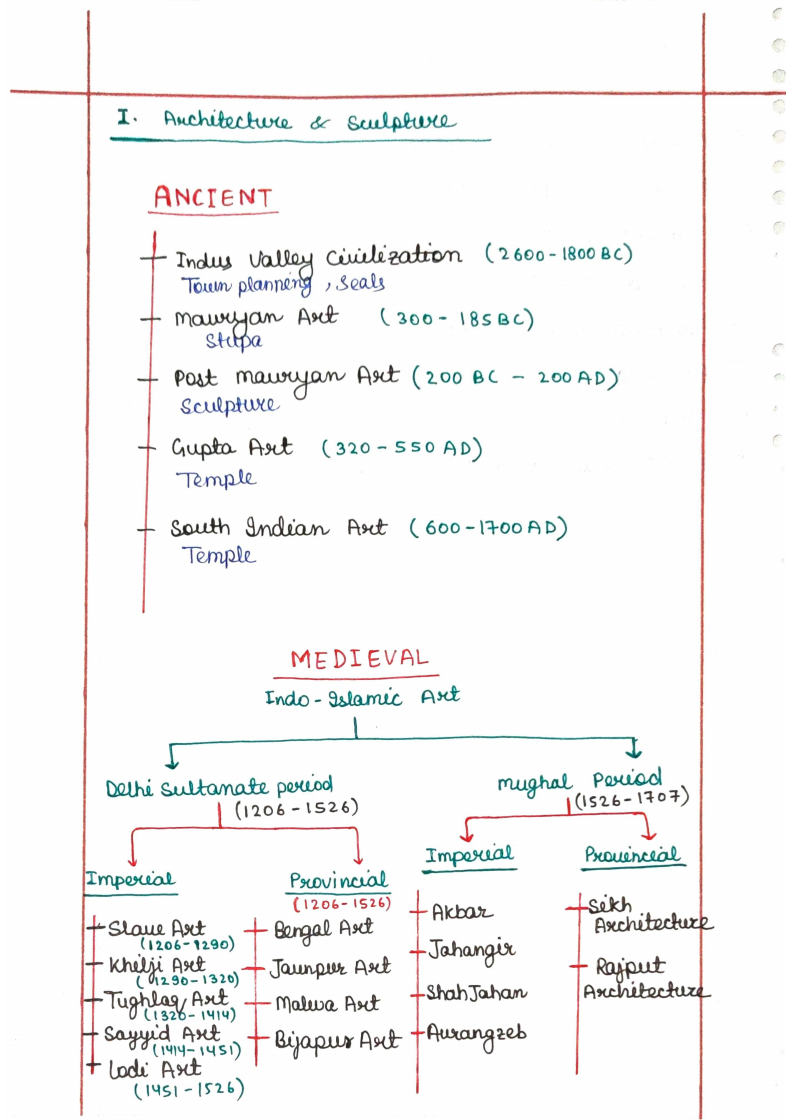 I. Architecture & Sculpture
ANCIENT
Indus Valley Civilization (2600-1800 BC)
Town planning, Seals
Mauryan Art (300-185BC)
Stupa
Post Mauryan Art (200 BC - 200 AD)
Sculpture
Gupta Art (320-550 AD)
Temple
South Indian Art (600-1700 AD)
Temple
MEDIEVAL
Indo-Islamic Art
Delhi Sultanate period
(1206-1526)
Imperial
Slave Art
(1206-1290)
Khilji Art
(1290-1320)
Tughlaq Art
(1320-1414)
Sayyid Art
(1414-1451)
Lodi Art
(1451-1526)
Provincial
(1206-1526)
Bengal Art
Jaunpur Art
Malwa Art
Bijapur Art
Mughal Period
(1526-1707)
Imperial
Akbar
Jahangir
Shah Jahan
Aurangzeb
Provencial
Sikh
Architecture
Rajput
Architecture